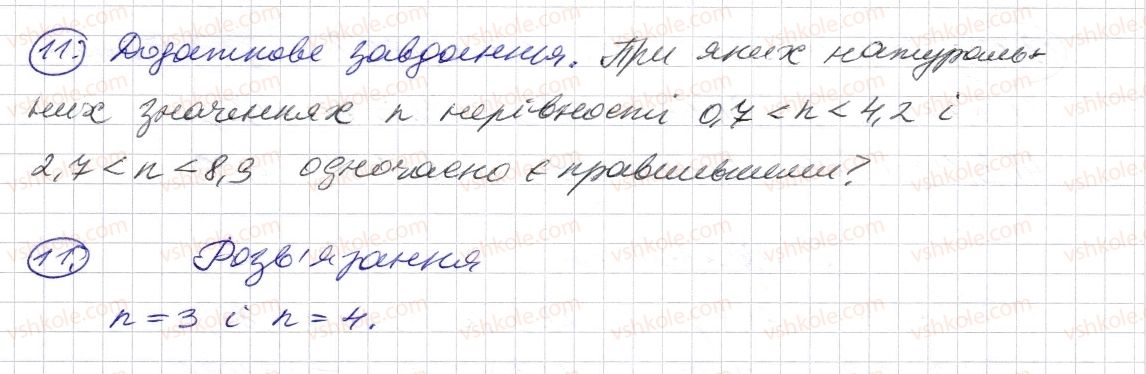 11. Додаткове завдання. При яких натураль-
них значеннях n нерівності 0,7 < n < 4,2 і
2,7 < n < 8,9 одночасно є правильними?
11. Розв'язання
n = 3 і n = 4.